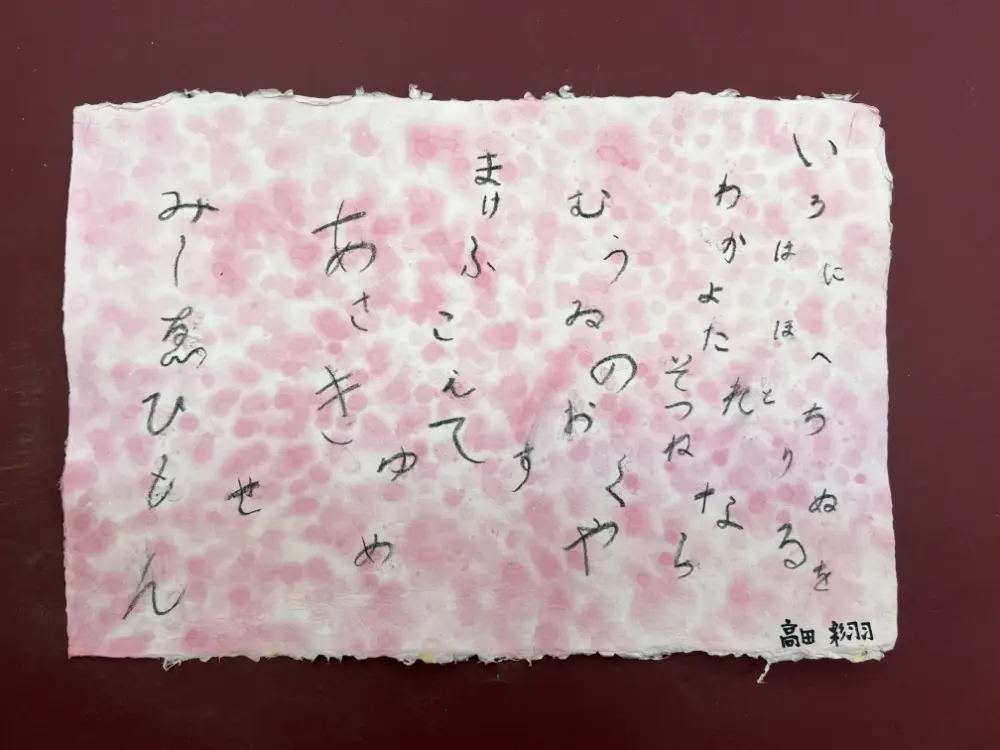 いろはにほへとちりぬるを
わかよたれそつねなら
むうゐのおくや
す
まけふこえて
あさきゆめ
みしゑひもせん
高田 彩羽